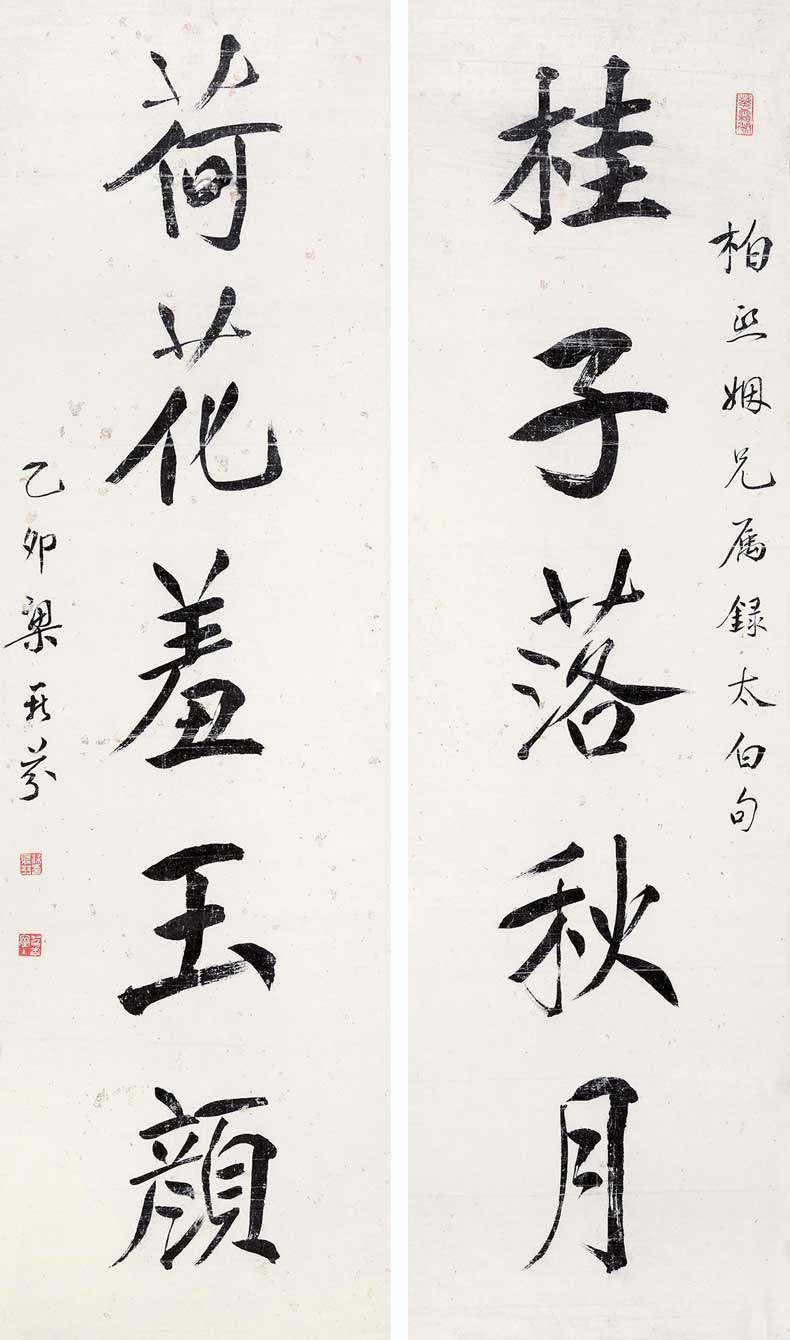 柏熙姻兄属錄太白句
桂子落秋月
荷花羞玉顏
乙卯梁鼎芬